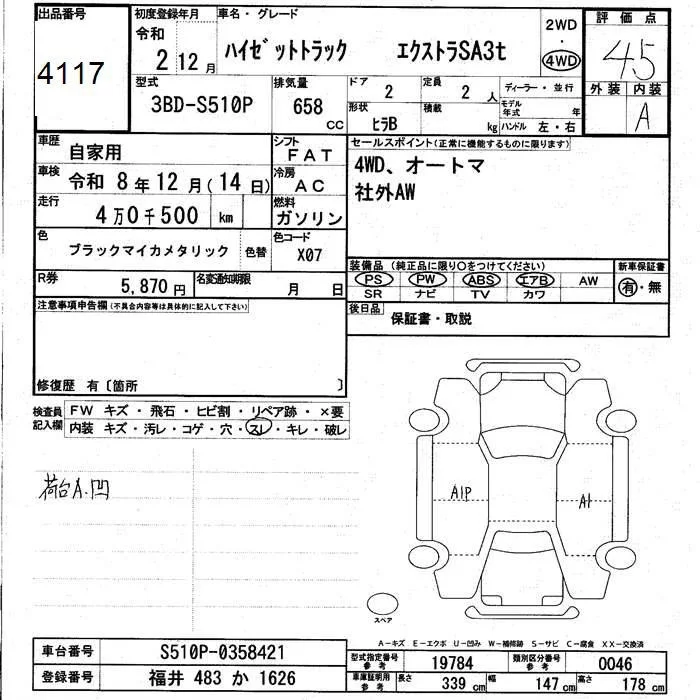 出品番号
4117
初度登録年月
令和
2 12 月
車名・グレード
ハイゼットトラック エクストラSA3t
2WD
・
4WD
評価点
4.5
外装 内装
A
型式
3BD-S510P
排気量
658
cc
ドア
2
定員
2 人
形状
ヒラB
積載
kg
ディーラー・並行
モデル
年式 年
ハンドル 左・右
車歴
自家用
シフト
FAT
車検
令和 8年12月(14日)
冷房
AC
走行
4万0千500 km
燃料
ガソリン
色
ブラックマイカメタリック
色替
色コード
X07
R券
5,870円
名変通知期限
月 日
セールスポイント(正常に機能するものに限ります)
4WD、オートマ
社外AW
装備品(純正品に限り〇をつけてください)
新車保証書
PS PW ABS エアB AW
SR ナビ TV カワ
有・無
後日品
保証書・取説
注意事項申告欄(不具合内容等は具体的に記入して下さい)
修復歴 有〔箇所 〕
検査員
記入欄
FW キズ・飛石・ヒビ割・リペア跡・×要
内装 キズ・汚レ・コゲ・穴・スレ・キレ・破レ
荷台A.凹
A1P
A1
スペア
A-キズ E-エクボ U-凹み W-補修跡 S-サビ C-腐食 XX-交換済
車台番号
S510P-0358421
登録番号
福井 483 か 1626
型式指定番号
参考
19784
類別区分番号
参考
0046
車庫証明用
参考
長さ
339 cm
幅
147 cm
高さ
178 cm